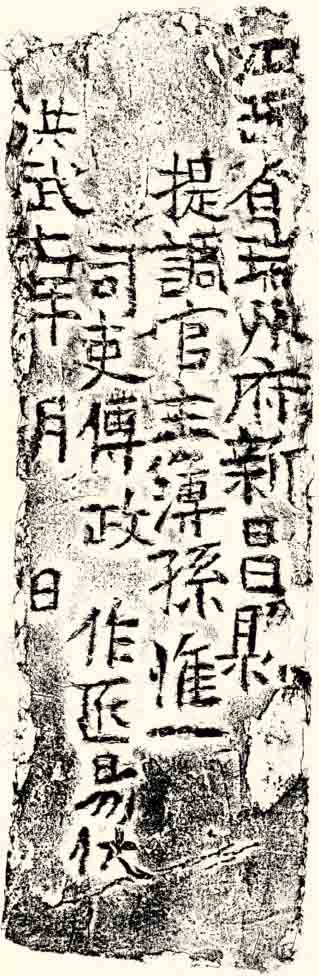 江西省瑞州府新昌縣
提調官主簿孫惟一
司吏傅政 作匠易伏
洪武七年 月 日